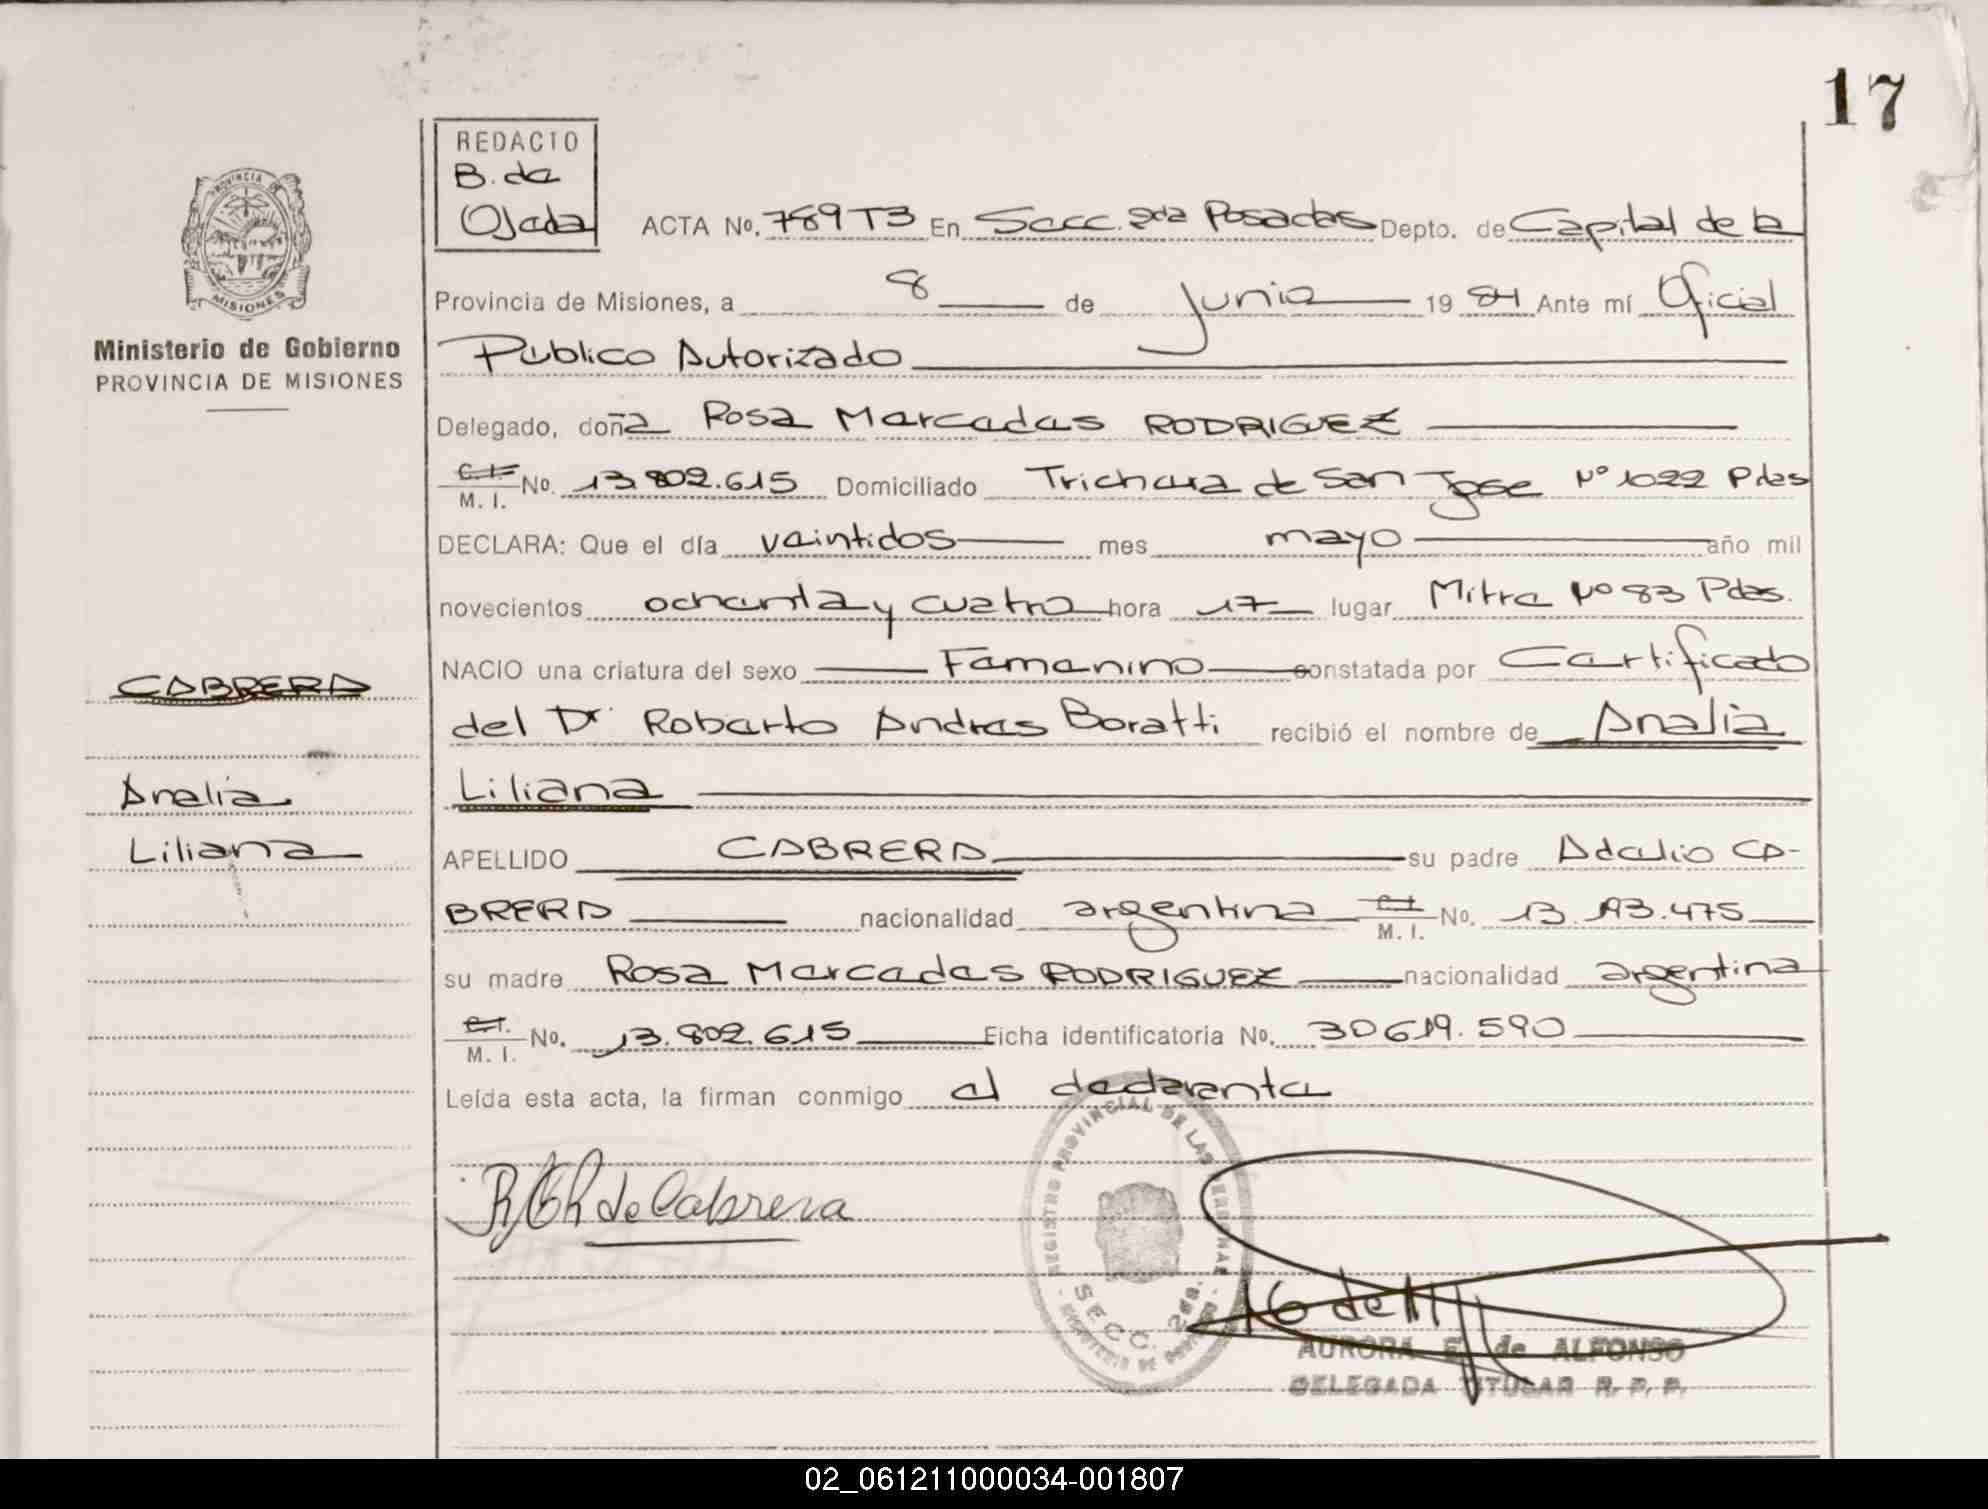 17
REDACTO
B. de
Ojeda
PROVINCIA DE
MISIONES
Ministerio de Gobierno
PROVINCIA DE MISIONES
ACTA No. 789 T3 En Secc. 2da Posadas Depto. de Capital de la
Provincia de Misiones, a 8 de Junio 1984 Ante mí Oficial
Publico Autorizado
Delegado, doña Rosa Mercedes RODRIGUEZ
C.I. M. I. No. 13.802.615 Domiciliado de San Jose Nº 1022 Pdas
DECLARA: Que el día veintidos mes mayo año mil
novecientos ochenta y cuatro hora 17 lugar Mitre Nº 83 Pdas.
NACIO una criatura del sexo Femenino constatada por Certificado
del Dr Roberto Andres Boratti recibió el nombre de Analia
Liliana
APELLIDO CABRERA su padre Adelio CA-
BRERA nacionalidad argentina C.I. M. I. No. 13.193.475
su madre Rosa Mercedes RODRIGUEZ nacionalidad argentina
C.I. M. I. No. 13.802.615 Ficha identificatoria No. 30619.590
Leída esta acta, la firman conmigo el declarante
CABRERA
Analia
Liliana
de Cabrera
REGISTRO PROVINCIAL DE LAS PERSONAS
SECC. 2da.
AURORA E. de ALFONSO
DELEGADA TITULAR R. P. P.
02_061211000034-001807